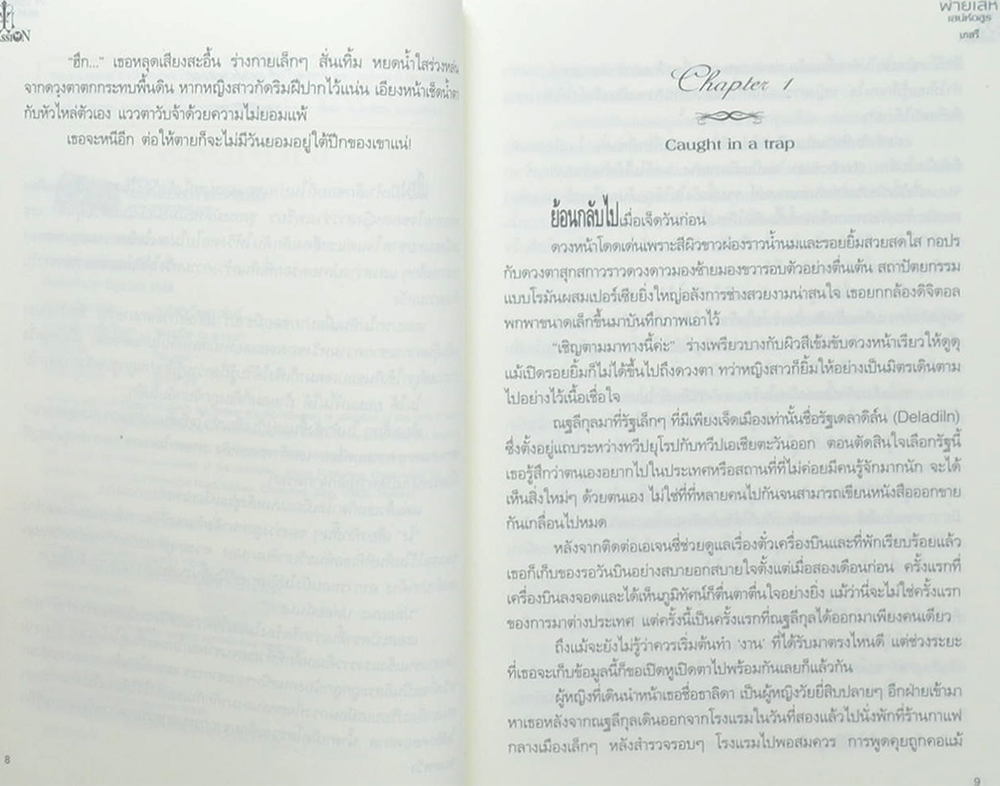 “ฮึก...” เธอหลุดเสียงสะอื้น ร่างกายเล็กๆ สั่นเทิ้ม หยดน้ำใสร่วงหล่น
จากดวงตาตกกระทบพื้นดิน หากหญิงสาวกัดริมฝีปากไว้แน่น เอียงหน้าเช็ดน้ำตา
กับหัวไหล่ตัวเอง แววตาวับจ้าด้วยความไม่ยอมแพ้
เธอจะหนีอีก ต่อให้ตายก็จะไม่มีวันยอมอยู่ใต้ปีกของเขาแน่!
8
พ่ายเล่ห์
เสน่ห์อสูร
เกสรี
Chapter 1
Caught in a trap
ย้อนกลับไปเมื่อเจ็ดวันก่อน
ดวงหน้าโดดเด่นเพราะสีผิวขาวผ่องราวน้ำนมและรอยยิ้มสวยสดใส กอปร
กับดวงตาสุกสกาวราวดวงดาวมองซ้ายมองขวารอบตัวอย่างตื่นเต้น สถาปัตยกรรม
แบบโรมันผสมเปอร์เซียยิ่งใหญ่อลังการช่างสวยงามน่าสนใจ เธอยกกล้องดิจิตอล
พกพาขนาดเล็กขึ้นมาบันทึกภาพเอาไว้
“เชิญตามมาทางนี้ค่ะ” ร่างเพรียวบางกับผิวสีเข้มขับดวงหน้าเรียวให้ดูดุ
แม้เปิดรอยยิ้มก็ไม่ได้ขึ้นไปถึงดวงตา ทว่าหญิงสาวก็ยิ้มให้อย่างเป็นมิตรเดินตาม
ไปอย่างไว้เนื้อเชื่อใจ
ณฐลีกุลมาที่รัฐเล็กๆ ที่มีเพียงเจ็ดเมืองเท่านั้นชื่อรัฐเดลาดิล์น (Deladiln)
ซึ่งตั้งอยู่แถบระหว่างทวีปยุโรปกับทวีปเอเชียตะวันออก ตอนตัดสินใจเลือกรัฐนี้
เธอรู้สึกว่าตนเองอยากไปในประเทศหรือสถานที่ที่ไม่ค่อยมีคนรู้จักมากนัก จะได้
เห็นสิ่งใหม่ๆ ด้วยตนเอง ไม่ใช่ที่ที่หลายคนไปกันจนสามารถเขียนหนังสือออกขาย
กันเกลื่อนไปหมด
หลังจากติดต่อเอเจนซี่ช่วยดูแลเรื่องตั๋วเครื่องบินและที่พักเรียบร้อยแล้ว
เธอก็เก็บของรอวันบินอย่างสบายอกสบายใจตั้งแต่เมื่อสองเดือนก่อน ครั้งแรกที่
เครื่องบินลงจอดและได้เห็นภูมิทัศน์ก็ตื่นตาตื่นใจอย่างยิ่ง แม้ว่านี่จะไม่ใช่ครั้งแรก
ของการมาต่างประเทศ แต่ครั้งนี้เป็นครั้งแรกที่ณฐลีกุลได้ออกมาเพียงคนเดียว
ถึงแม้จะยังไม่รู้ว่าควรเริ่มต้นทำ ‘งาน’ ที่ได้รับมาตรงไหนดี แต่ช่วงระยะ
ที่เธอจะเก็บข้อมูลนี้ก็ขอเปิดหูเปิดตาไปพร้อมกันเลยก็แล้วกัน
ผู้หญิงที่เดินนำหน้าเธอชื่อธาลิดา เป็นผู้หญิงวัยยี่สิบปลายๆ อีกฝ่ายเข้ามา
หาเธอหลังจากณฐลีกุลเดินออกจากโรงแรมในวันที่สองแล้วไปนั่งพักที่ร้านกาแฟ
กลางเมืองเล็กๆ หลังสำรวจรอบๆ โรงแรมไปพอสมควร การพูดคุยถูกคอแม้
9